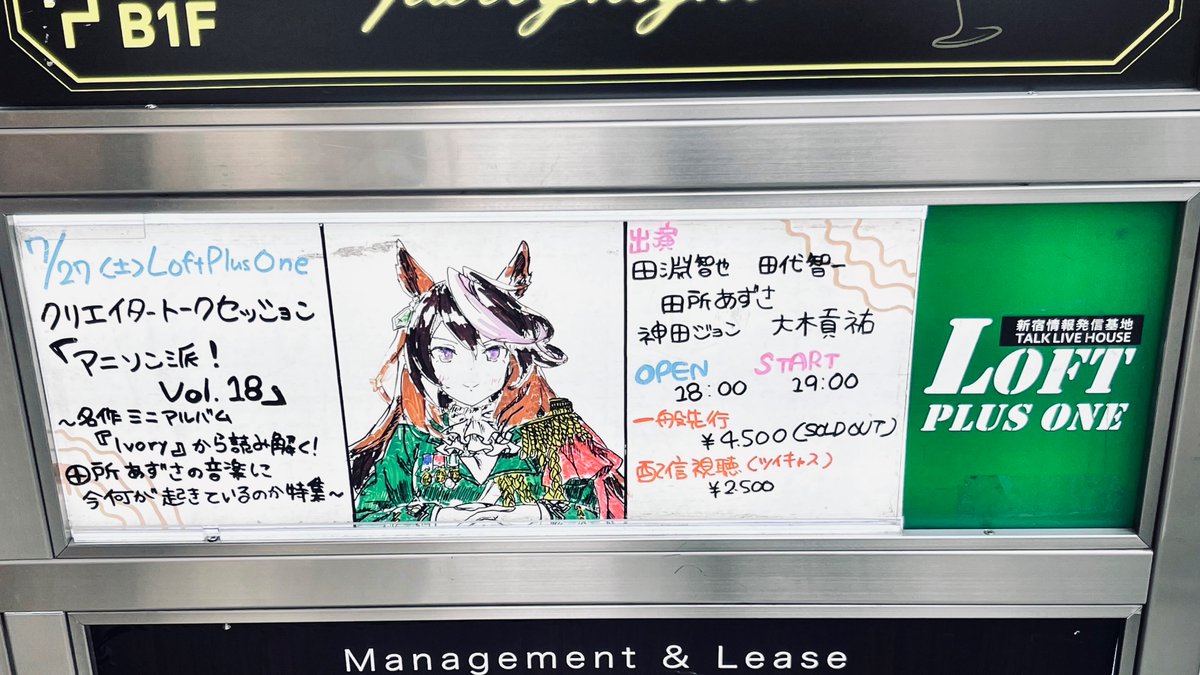 B1F
7/27(土)LoftPlusOne
クリエイタートークセッション
『アニソン派!
Vol.18』
~名作ミニアルバム
『Ivory』から読み解く!
田所あずさの音楽に
今何が起きているのか特集~
出演
田淵智也 田代智一
田所あずさ
神田ジョン 大木貢祐
OPEN START
18:00 19:00
一般先行
¥4.500(SOLD OUT)
配信視聴(ツイキャス)
¥2500
新宿情報発信基地
TALK LIVE HOUSE
LOFT
PLUS ONE
Management & Lease